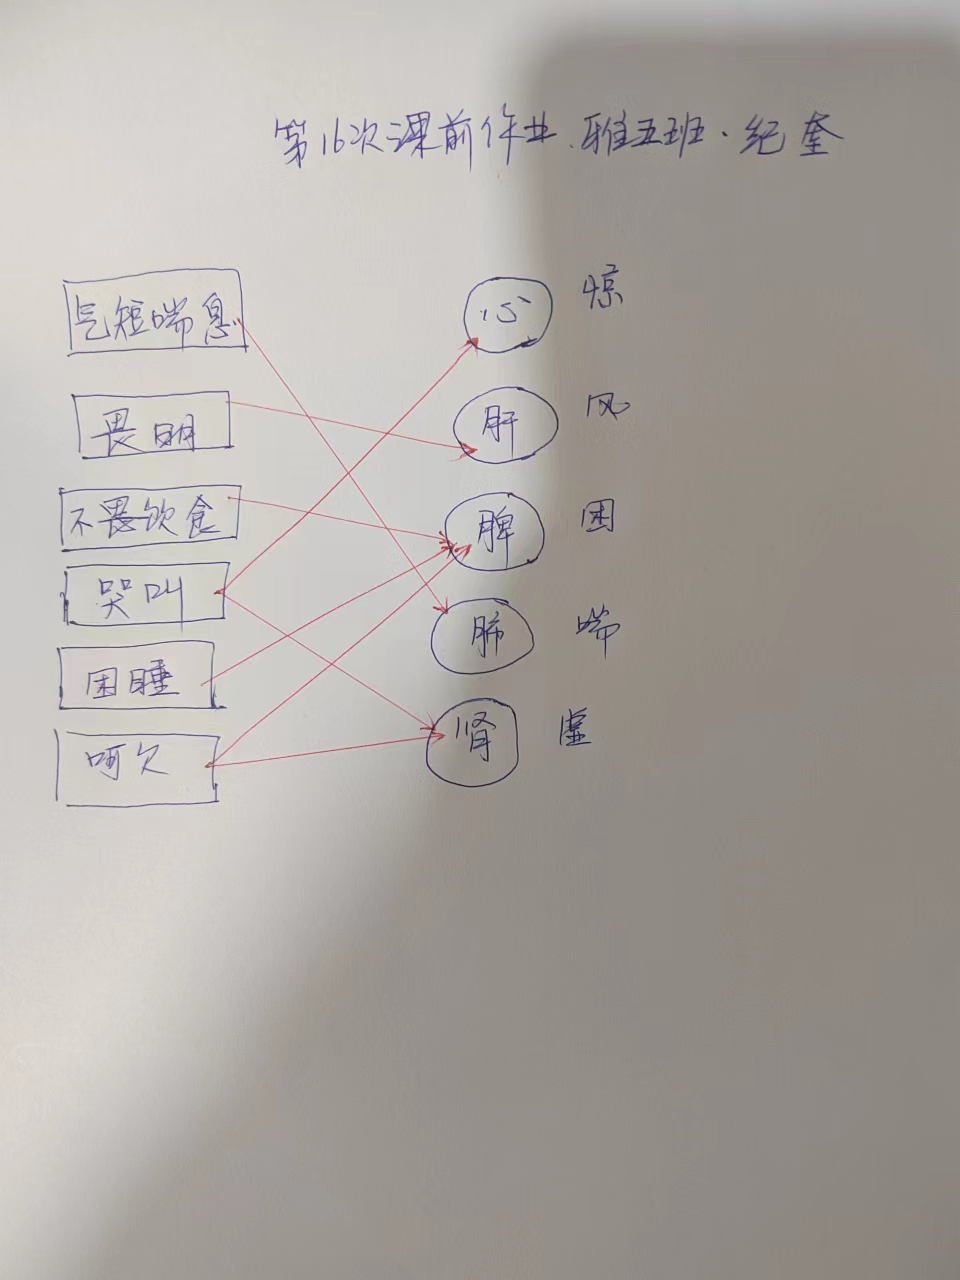 第16次课前作业.雅五班·纪奎
气短喘息
心
惊
畏明
肝
风
不畏饮食
脾
困
哭叫
肺
喘
困睡
肾
虚
呵欠